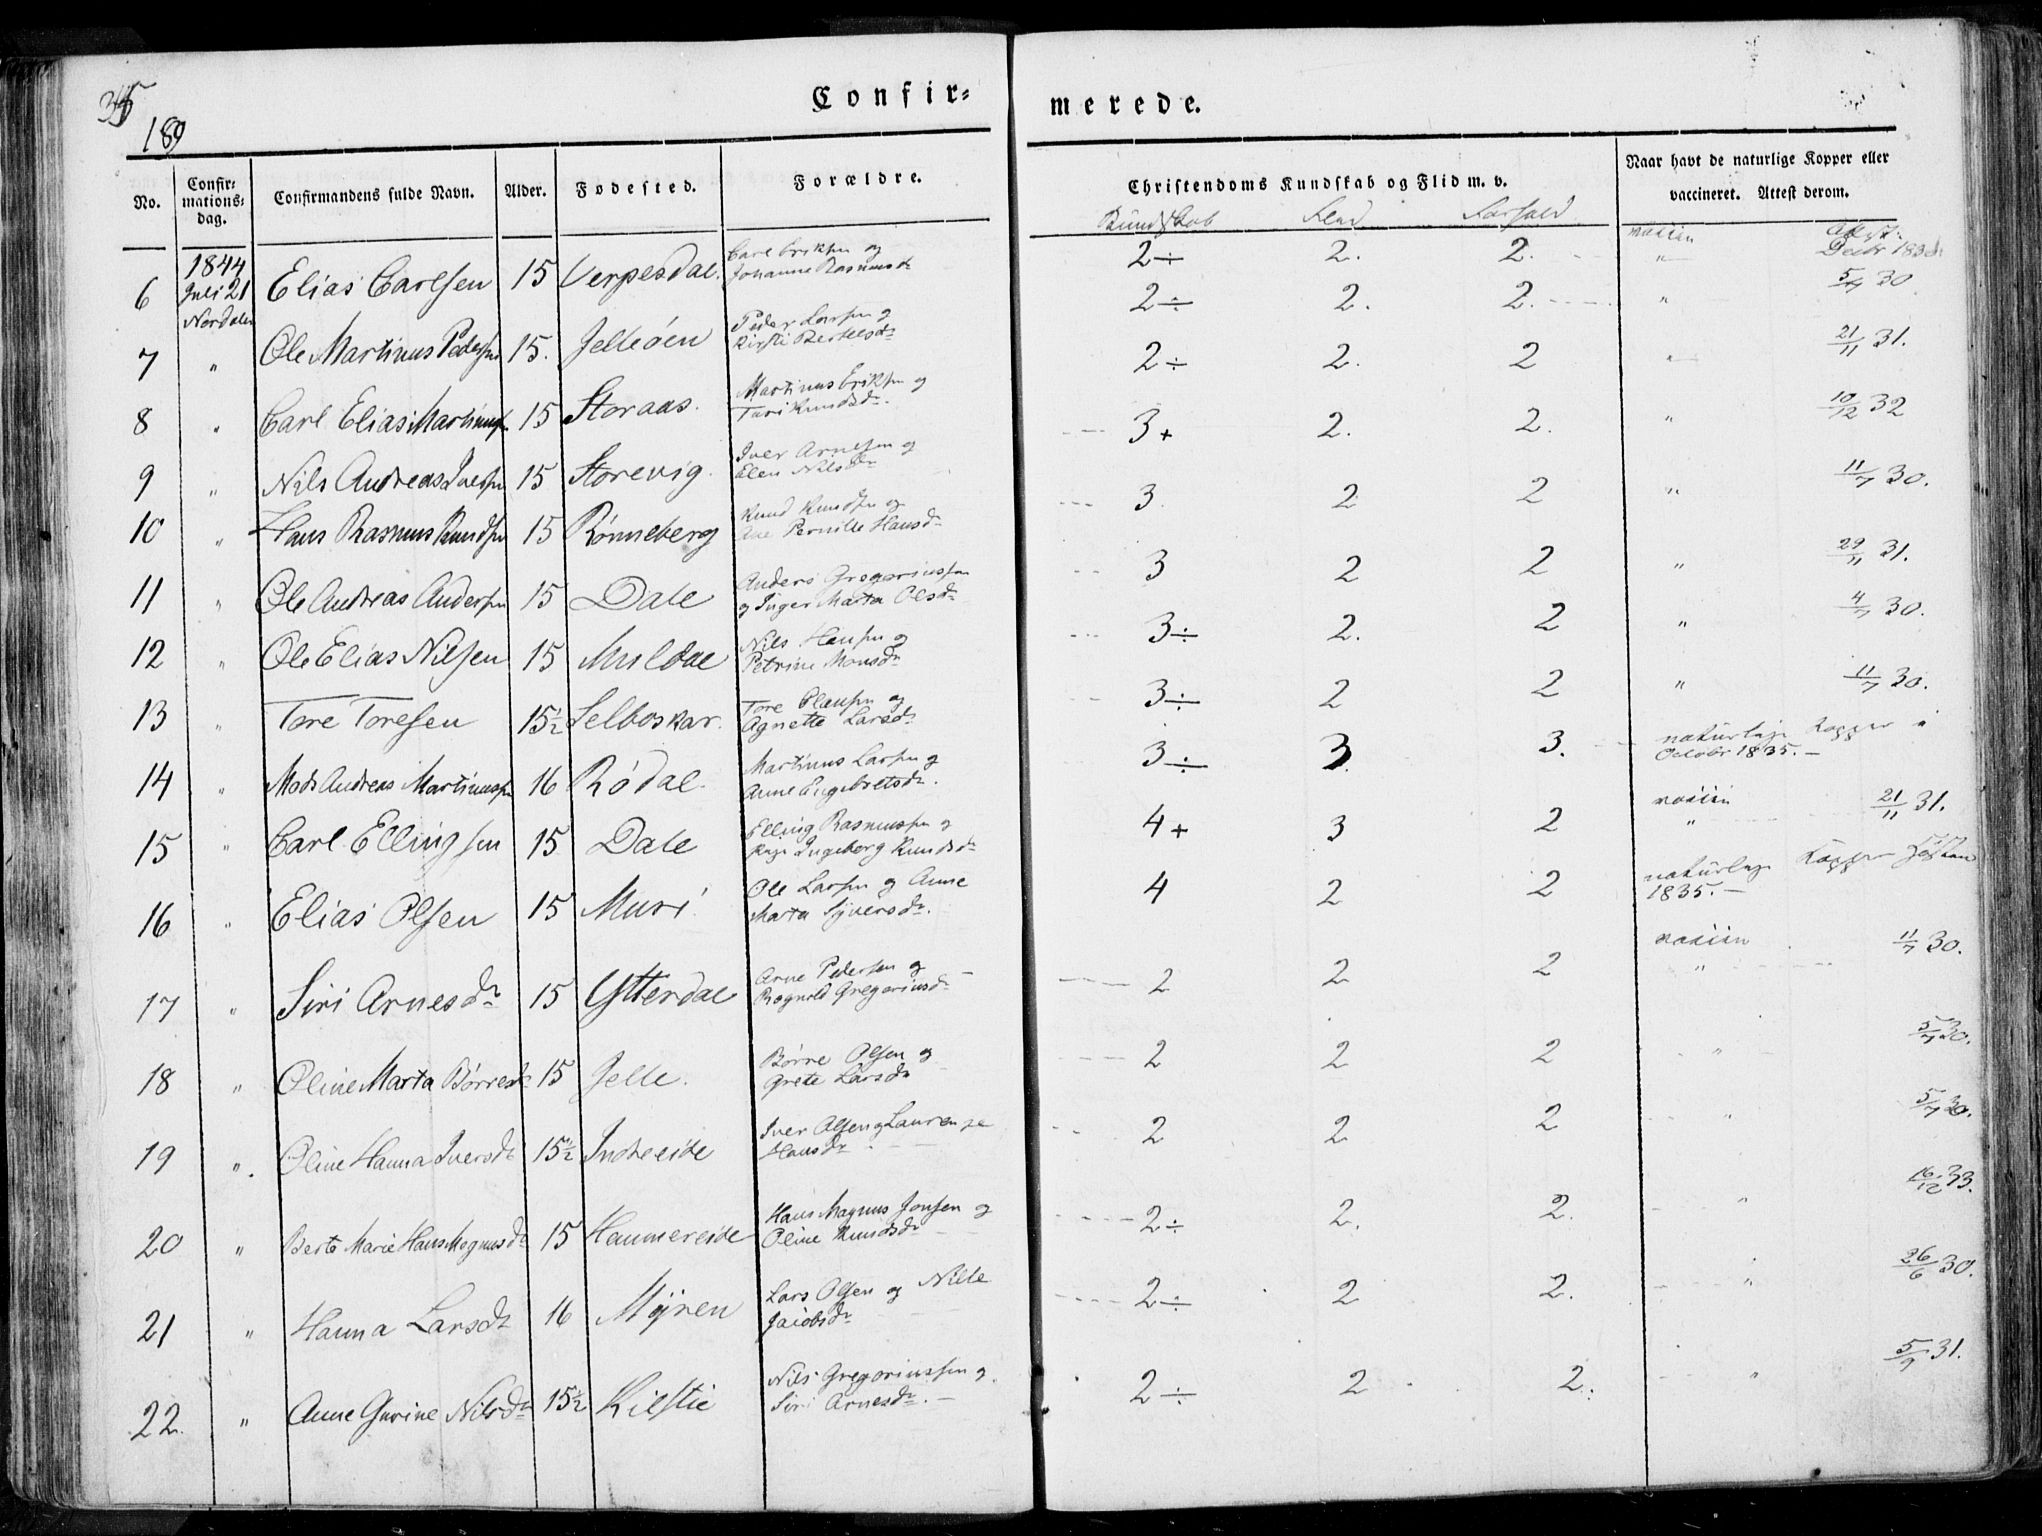 189
Confir=
merede.
No.
Confir=
mations=
dag.
Confirmandens fulde Navn.
Alder.
Fødested.
Forældre.
Christendoms Kundskab og Flid m. v.
Naar havt de naturlige Kopper eller
vaccineret. Attest derom.
Kundskab Flid Forhold
1844
Juli 21
Nordalen
6 Elias Carlsen 15 Verpesdal. Carl Eriksen og
Johanne Rasmusdr 2÷ 2. 2. vaccin
7 " Ole Martinus Pedersen 15. Jelleøen Peder Larsen og
Kirsti Bertelsdr 2÷ 2. 2. " 5/7 30
8 " Carl Elias Martinusen 15 Storaas. Martinus Eriksen og
Turi Knudsdr. 2÷ 2. 2 " 21/11 31.
9 " Nils Andreas Iversen 15 Storevig. Iver Arnesen og
Elen Nilsdr 3+ 2. 2. " 10/12 32
10 " Hans Rasmus Knudsen 15 Rønneberg Knud Knudsen og
Ane Pernille Hansdr 3. 2 2 " 11/7 30.
11 " Ole Andreas Andersen 15 Dale Anders Gregoriussen
og Inger Marta Olsdr 3 2 2 " 29/11 31.
12 " Ole Elias Nilsen 15 Muldal Nils Hansen og
Petrine Monsdr 3÷ 2. 2 " 4/7 30.
13 " Tore Toresen 15½ Selboskar. Tore Clausen og
Agnette Larsdr 3÷ 2 2 " 11/7 30.
14 " Mads Andreas Martinussen 16 Rødal. Martinus Larsen og
Anne Engebretsdr. 3÷ 3. 3. naturlige Kopper i
October 1835.
15 " Carl Ellingsen 15 Dale Elling Rasmussen og
Ingeborg Knudsdr 4+ 3 2 vaccin
" 21/11 31.
16 " Elias Olsen 15 Muri Ole Larsen og Anne
Marta Syversdr. 4 2 2 naturlige Kopper
1835.
17 " Siri Arnesdr 15 Ytterdal Arne Pedersen og
Ragnild Gregoriusdr 2 2 2 vaccin
" 11/7 30.
18 " Oline Marta Børresdr 15 Jelle. Børre Olsen og
Grete Larsdr 2 2 2 " 5/7 30.
19 " Oline Hanna Iversdr 15½ Indreeide Iver Olsen og Laurense
Hansdr 2 2 2 " 5/7 30.
20 " Berte Marie Hans Magnusdr 15 Hammereide Hans Magnus Jonsen og
Oline Knudsdr 2÷ 2. 2. " 16/12 33.
21 " Hanna Larsdr 16 Myren Lars Olsen og Nille
Jacobsdr 2÷ 2 2. " 26/6 30.
22. " Anne Gurine Nilsdr 15½ Kilstie Nils Gregoriussen og
Siri Arnesdr. 2÷ 2 2. " 5/9 31.